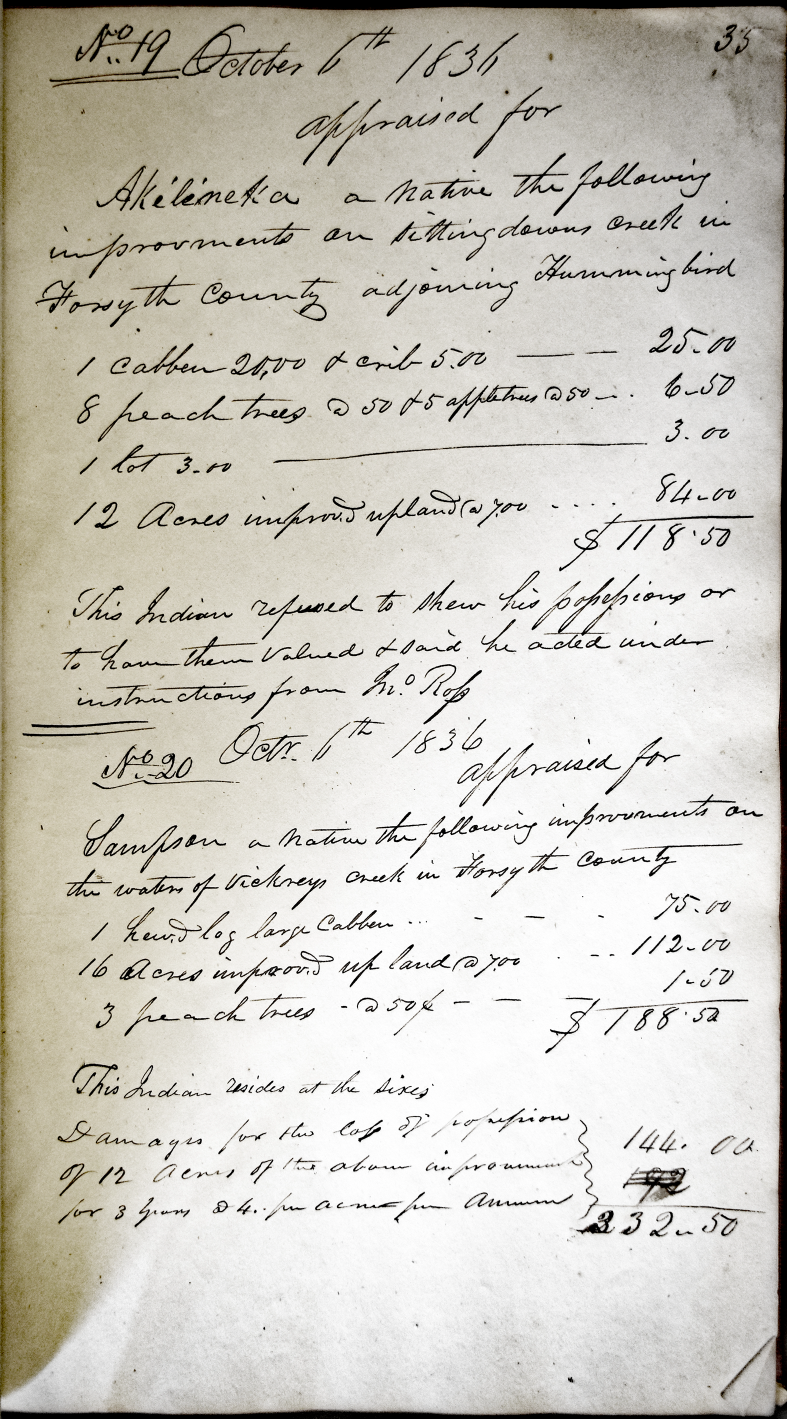 35
No. 19 October 6th 1836
appraised for
Akéléneka a Native the following
improvments on Sittingdowns creek in
Forsyth County adjoining Hummingbird
1 cabben 20,00 & crib 5.00 — — 25.00
8 peach trees @ 50 & 5 appletrees @ 50 - . 6-50
1 lot 3.00 — 3.00
12 Acres improv.d upland @ 7.00 .... 84-00
$118.50
This Indian refused to shew his possessions or
to have them valued & said he acted under
instructions from Jno Ross
No. 20 Octr. 6th 1836
appraised for
Sampson a Native the following improvments on
the waters of Vickreys creek in Forsyth County
1 hew.d log large Cabben ... - - - 75.00
16 Acres improv.d up land @ 7.00 . -- 112-00
3 peach trees - @ 50¢ - — — 1-50
$188.50
This Indian resides at the Sixes
Damages for the loss of possession
of 12 Acres of the above improvment 144.00
for 3 Years @ 4. per acre per Annum 192
332-50